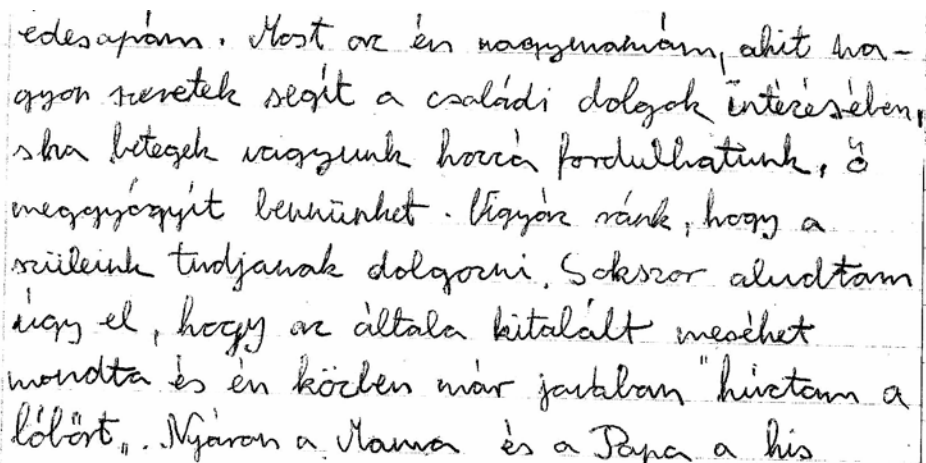 edesapám. Most az én nagymamám, akit na-
gyon szeretek segít a családi dolgok intézésében,
s ha betegek vagyunk hozzá fordulhatunk, ő
meggyógyít bennünket. Vigyáz ránk, hogy a
szüleink tudjanak dolgozni. Sokszor aludtam
úgy el, hogy az általa kitalált meséket
mondta és én közben már javában "húztam a
lóbőrt„. Nyáron a Mama és a Papa a kis